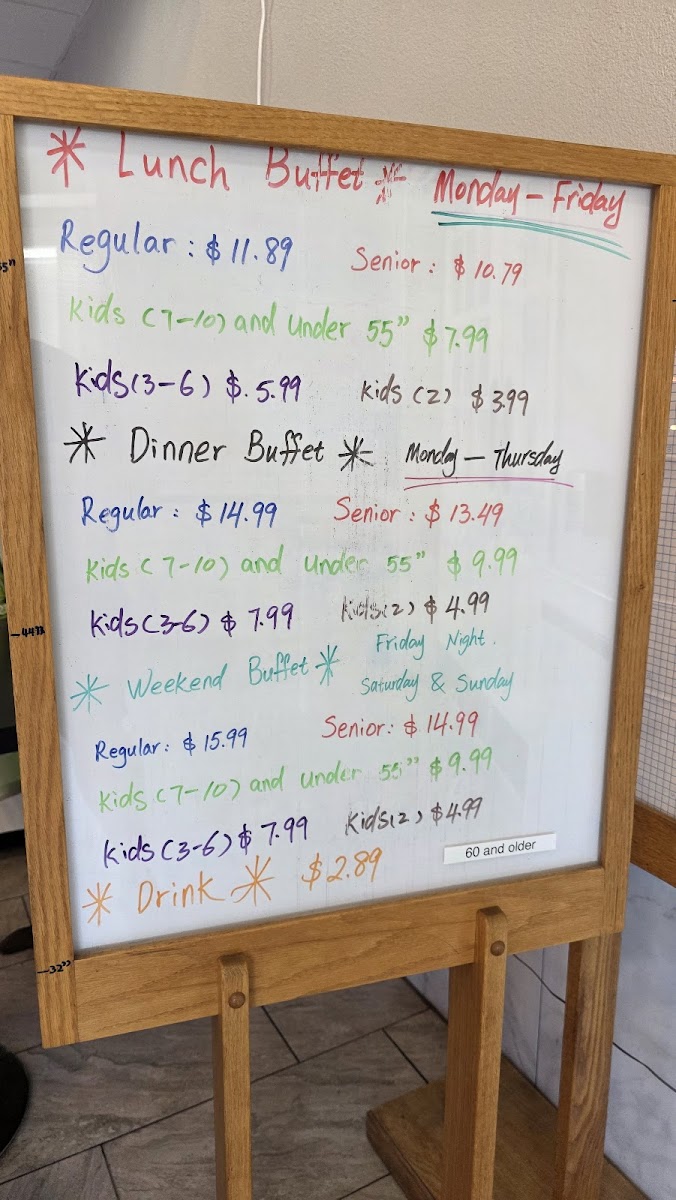 * Lunch Buffet * Monday - Friday
Regular : $ 11.89 Senior : $ 10.79
Kids (7-10) and under 55" $ 7.99
Kids (3-6) $. 5.99 Kids (2) $ 3.99
* Dinner Buffet * Monday - Thursday
Regular : $ 14.99 Senior : $ 13.49
Kids (7-10) and under 55" $ 9.99
Kids (3-6) $ 7.99 Kids (2) $ 4.99
* Weekend Buffet * Friday Night.
Saturday & Sunday
Regular : $ 15.99 Senior : $ 14.99
Kids (7-10) and under 55" $ 9.99
Kids (3-6) $ 7.99 Kids (2) $ 4.99
60 and older
* Drink * $ 2.89
-44"
-32"